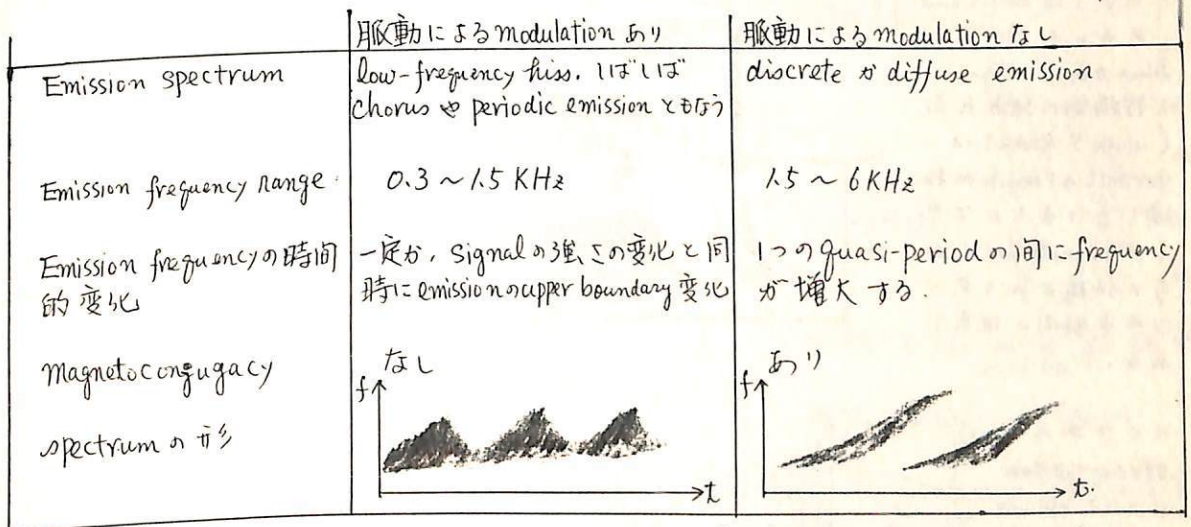 脈動による modulation あり
脈動による modulation なし
Emission spectrum
low-frequency hiss. しばしば
chorus や periodic emission ともなう
discrete か diffuse emission
Emission frequency range
0.3 ~ 1.5 KHz
1.5 ~ 6 KHz
Emission frequency の時間
的変化
一定か, Signal の強さの変化と同
時に emission の upper boundary 変化
1つの quasi-period の間に frequency
が増大する.
Magnetocongugacy
なし
あり
spectrum の形
f
t
f
t.